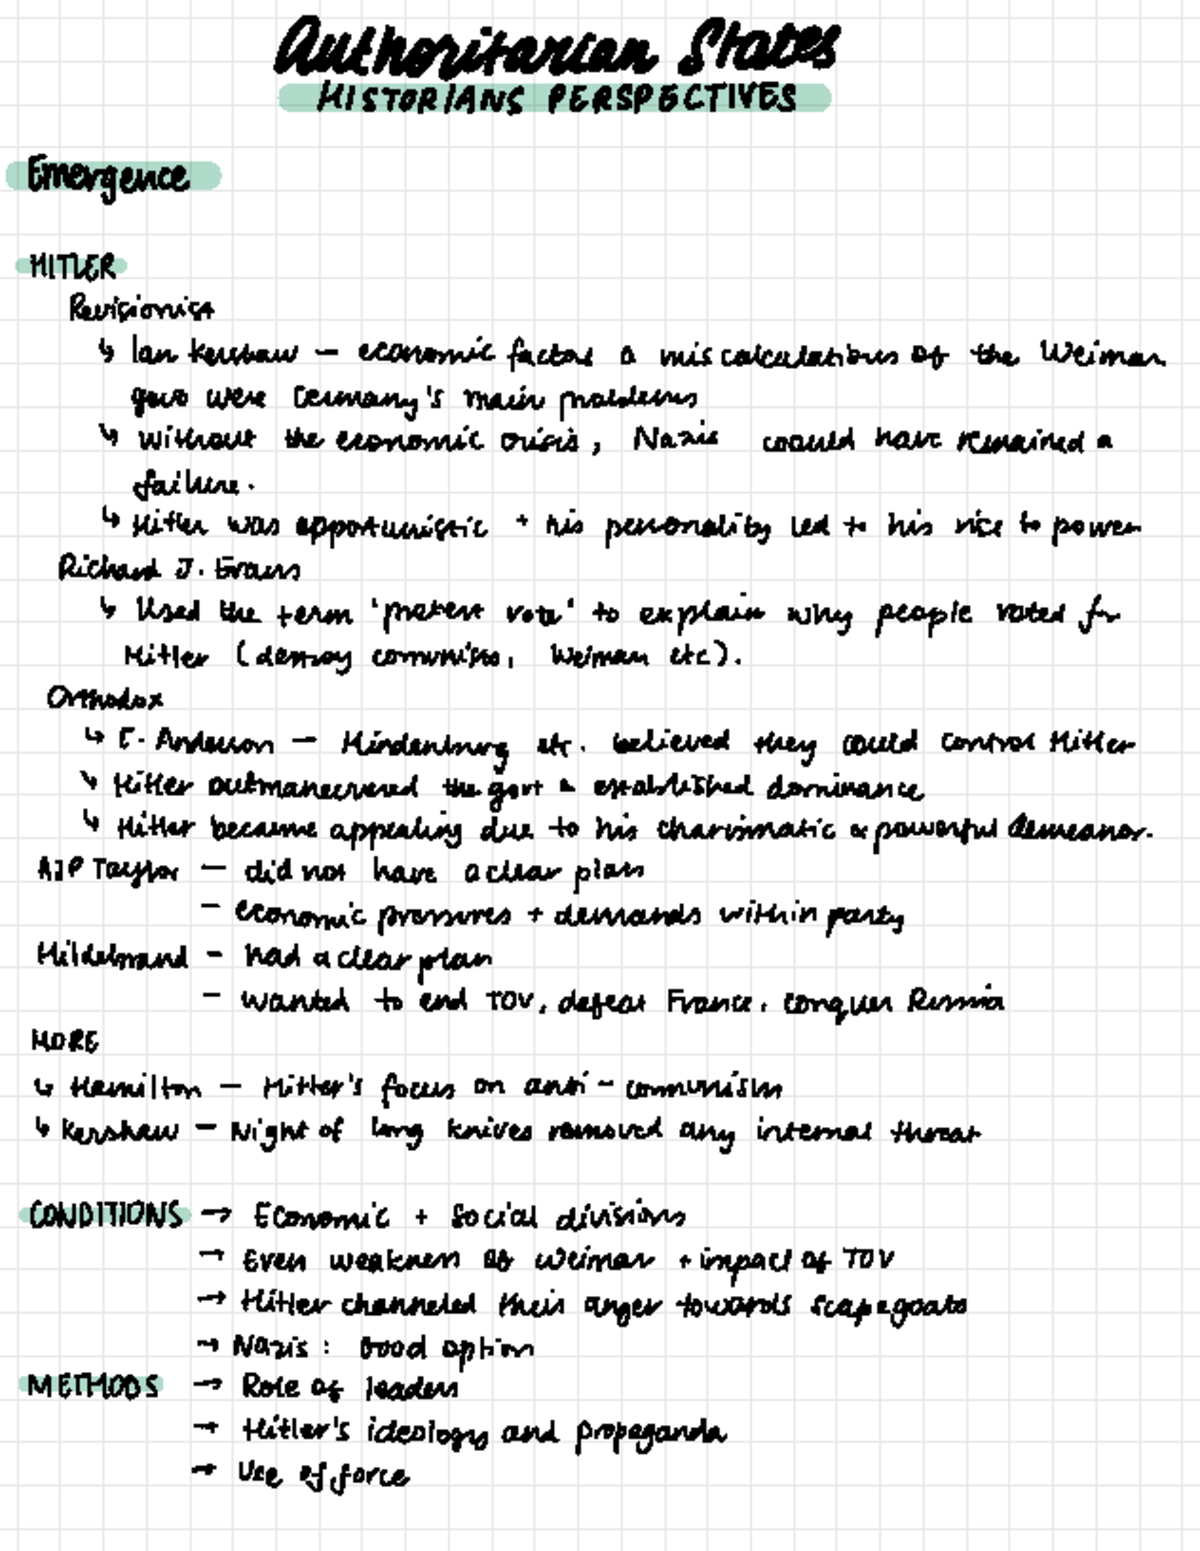 Authoritarian States
HISTORIANS PERSPECTIVES
Emergence
HITLER
Revisionist
↳ Ian Kershaw — economic factors & miscalculations of the Weimar
govt were Germany's main problems
↳ without the economic crisis, Nazis could have remained a
failure.
↳ Hitler was opportunistic + his personality led to his rise to power
Richard J. Evans
↳ Used the term 'protest vote' to explain why people voted for
Hitler (destroy communism, Weimar etc).
Orthodox
↳ E. Anderson — Hindenburg etc. believed they could control Hitler
↳ Hitler outmaneuvered the govt & established dominance
↳ Hitler became appealing due to his charismatic & powerful demeanor.
AJP Taylor — did not have a clear plan
— economic pressures + demands within party
Hildebrand — had a clear plan
— wanted to end TOV, defeat France, conquer Russia
MORE
↳ Hamilton — Hitler's focus on anti-communism
↳ Kershaw — Night of long knives removed any internal threat
CONDITIONS → Economic + Social divisions
→ Even weakness of Weimar + impact of TOV
→ Hitler channeled their anger towards scapegoats
→ Nazis: Good option
METHODS → Role of leaders
→ Hitler's ideology and propaganda
→ Use of force